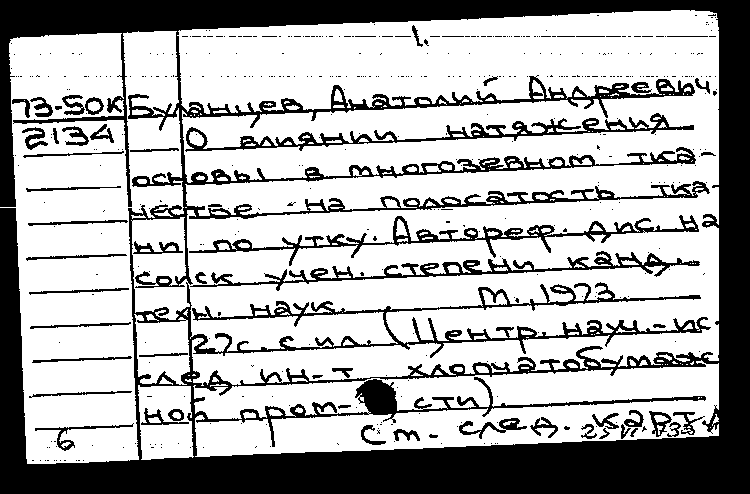 1.
73-50к Буланцев, Анатолий Андреевич.
2134 О влиянии натяжения
основы в многозевном тка-
честве на полосатость тка-
ни по утку. Автореф. дис. на
соиск учен. степени канд.
техн. наук. М., 1973.
27с. с ил. (Центр. науч.-ис-
след. ин-т хлопчатобумаж-
ной пром-сти).
6 См. след. карт.